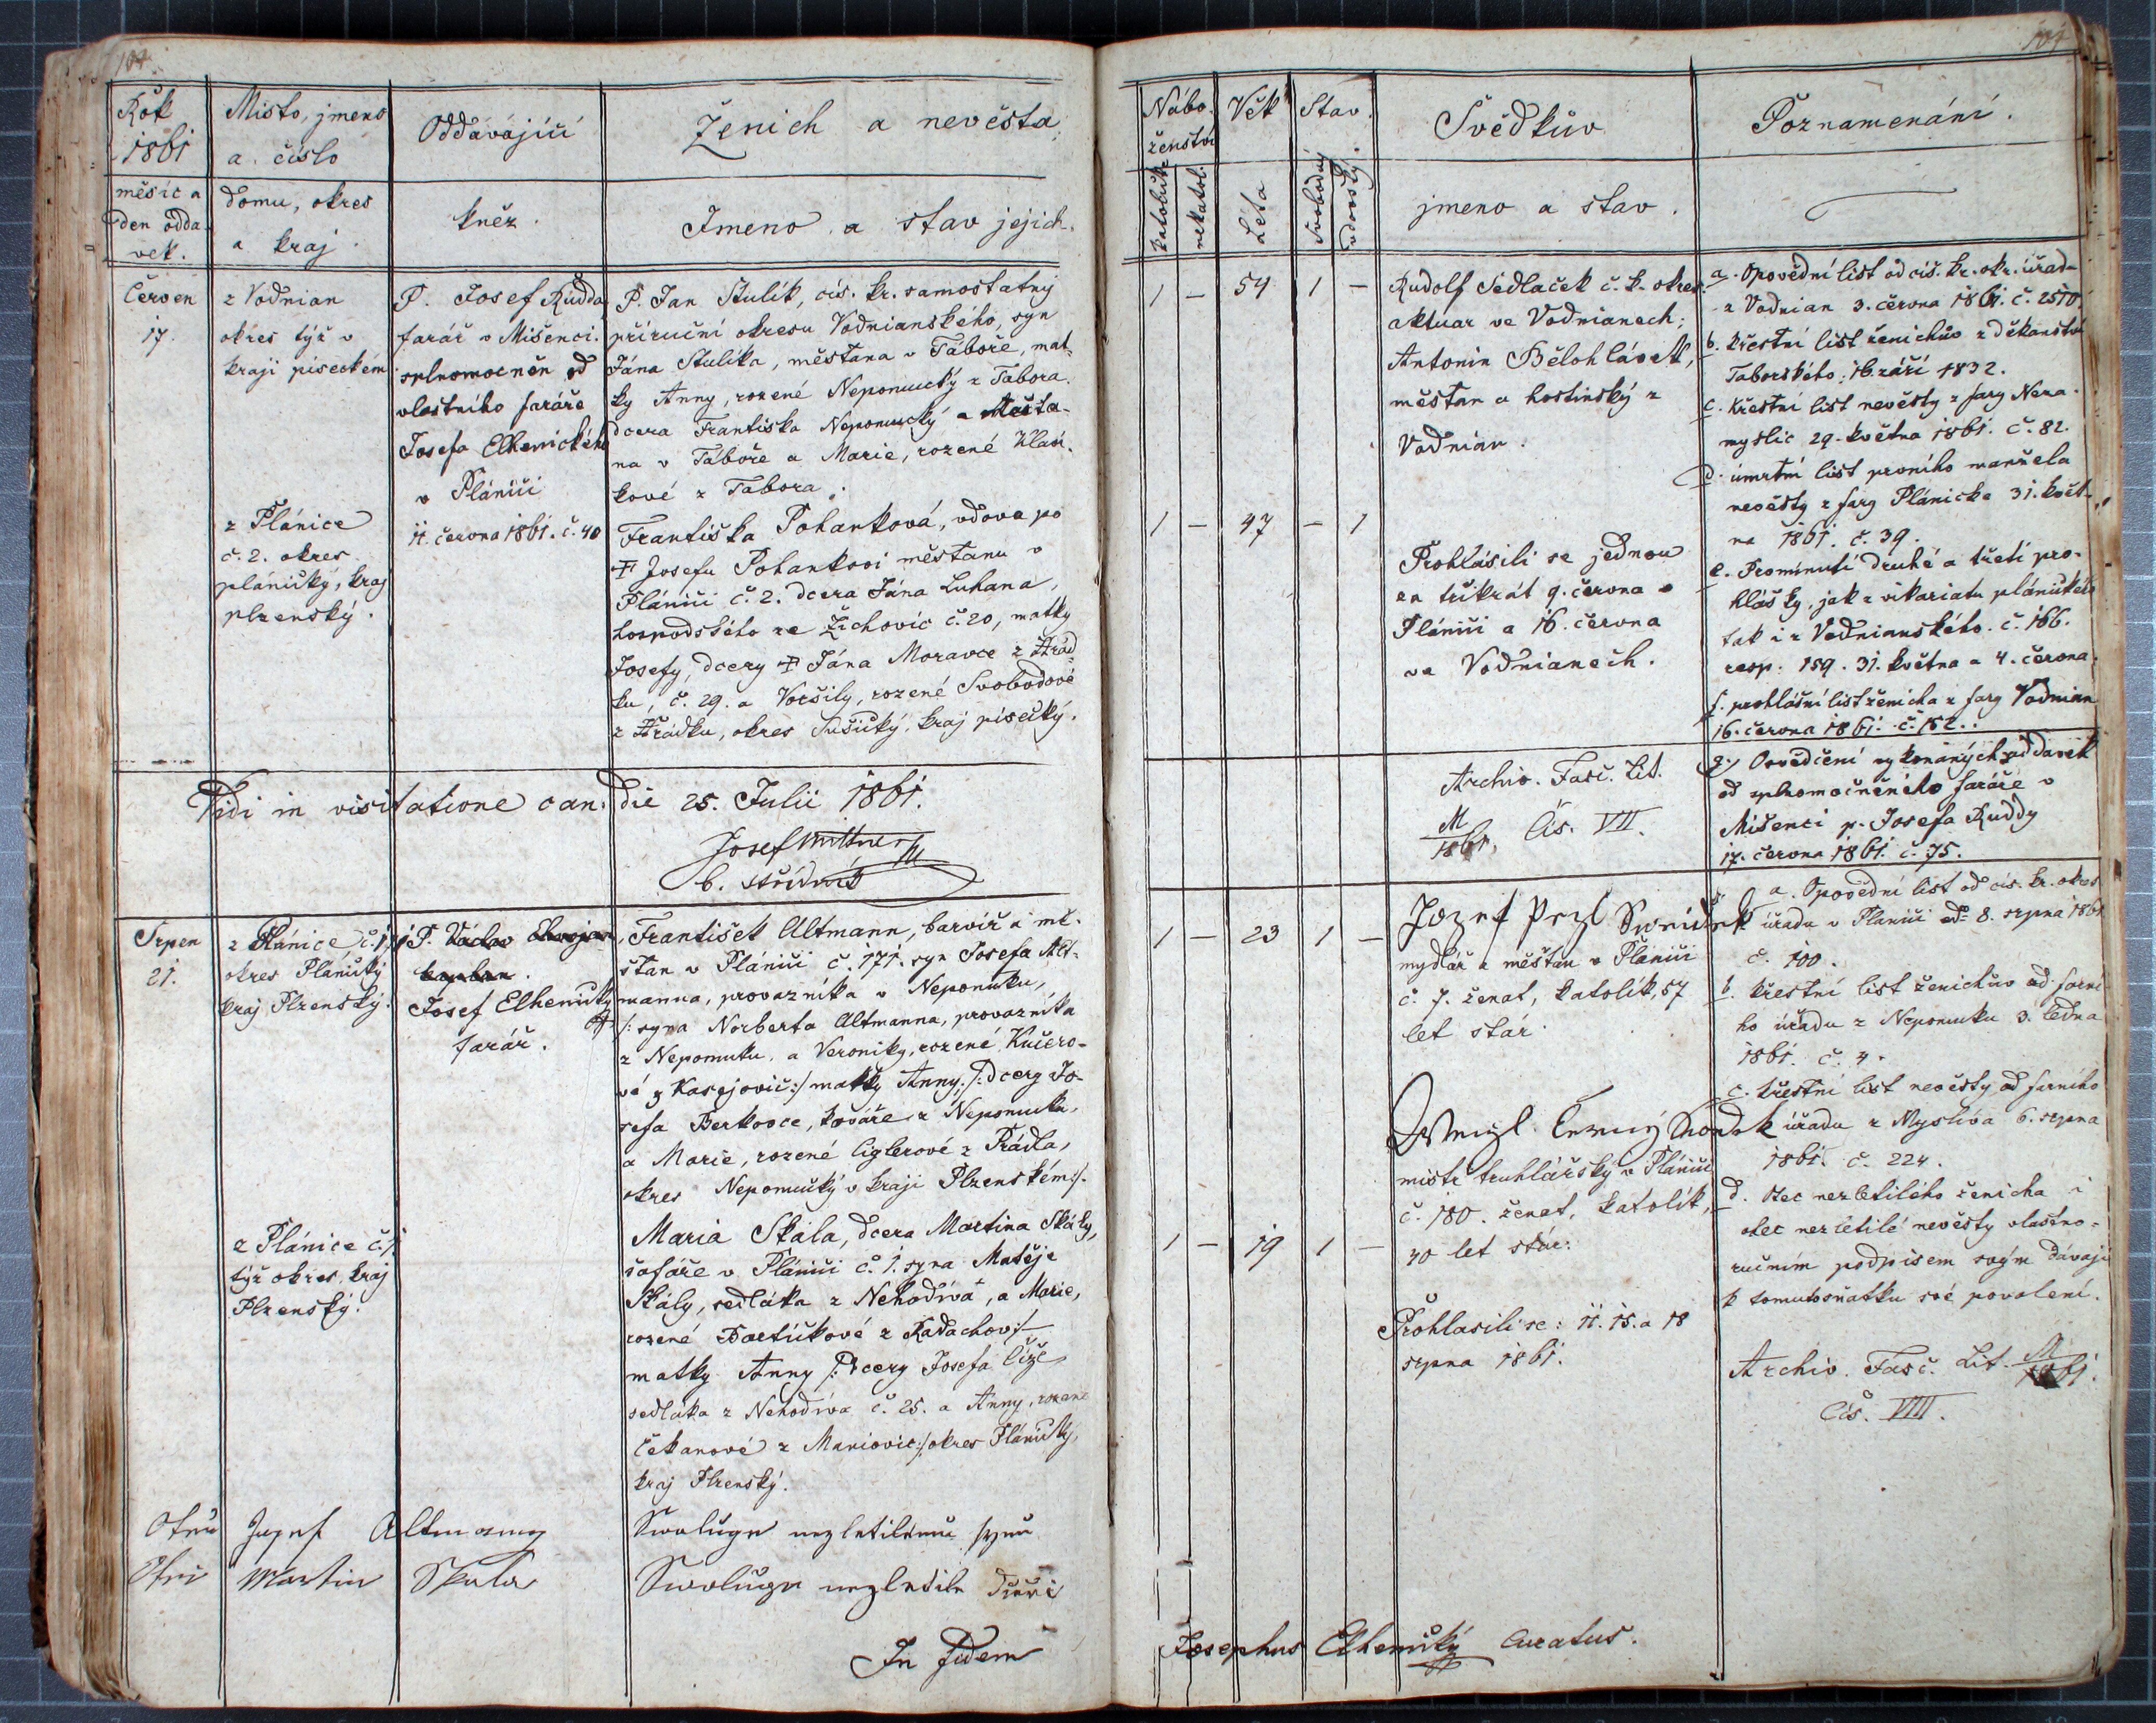 104
Rok
1861
Misto, jmeno
a. číslo
Oddávající
Ženich a nevěsta
měsíc a
den odda
vek.
domu, okres
a kraj
kněz.
Jmeno a stav jejich.
Červen
17.
z Vodnian
okres týž v
kraji píseckém
P. Josef Rudda
farář v Mišenci.
splnomocněn od
vlastního faráře
Josefa Elhenického
v Plánici
11. června 1861. č. 40
P. Jan Štulík, cís. kr. samostatný
příruční okresu Vodnianského, syn
Jána Štulíka, měšťana v Táboře, mat-
ky Anny, rozené Nepomucký z Tabora.
dcera Františka Nepomucký a Měšťa-
na v Táboře a Marie, rozené Hlaví-
kové z Tabora.
z Plánice
č. 2. okres
plánický, kraj
plzenský.
Františka Pohanková, vdova po
Josefu Pohankovi měštanu v
Plánici č. 2. dcera Jána Luhana,
hospodského ze Žichovic č. 20, matky
Josefy, dcery Jána Moravce z Hrád-
ku, č. 29. a Voršily, rozené Svobodové
z Hrádku, okres Sušický, kraj písecký.
Vidi in visitatione can. die 25. Julii 1861.
Josef Mittner
b. střídník
Srpen
21.
z Plánice č. 171
okres Plánický
kraj Plzenský.
P. Vaclav
kaplan.
Josef Elhenický
farář.
František Altmann, barvíř a mě-
štan v Plánici č. 171. syn Josefa Alt-
manna, provazníka v Nepomuku,
/: syna Norberta Altmanna, provazníka
z Nepomuku, a Veroniky, rozené Kučero-
vé z Kasejovic:/ matky Anny, /: dcery Jo-
sefa Berkovce, kováře z Nepomuka,
a Marie, rozené Ciglerové z Prádla,
okres Nepomucký v kraji Plzenském:/.
z Plánice č. 1.
týž okres, kraj
Plzenský.
Maria Skala, dcera Martina Skály,
šafáře v Plánici č. 1. syna Matěje
Skály, sedláka z Nehodiva, a Marie,
rozené Bartíčkové z Radachov:/
matky Anny /: dcery Josefa Číže
sedláka z Nehodiva č. 25. a Anny, rozené
Čekanové z Maniovic:/ okres Plánický,
kraj Plzenský.
Otec Jozef Altmann Swoluge nezletilemu synu
Otec Martin Skala Swoluge nezletile dceři
In fidem
Nábo-
ženství
Věk
Stav.
Svědkův
Poznamenání.
katolík.
nekatol.
Léta
Svobodný
vdovský.
jmeno a stav.
1 — 54 1 —
Rudolf Sedlaček č. k. okres.
aktuar ve Vodnianech;
Antonin Bělohlávek,
měštan a hostinský z
Vodnian.
1 — 47 — 1
Prohlásili se jednou
za třikrát 9. června v
Plánici a 16. června
ve Vodnianech.
a. Opovědní list od cís. kr. okr. úřadu
z Vodnian 3. června 1861. č. 2570
b. křestní list ženichův z děkanství
Taborského: 16. září 1832.
c. křestní list nevěsty z fary Neza-
myslic 29. května 1861. č. 82.
d. úmrtní list prvního manžela
nevěsty z fary Plánicke 31. květ-
na 1861. č. 39.
e. Prominutí druhé a třetí pro-
hlášky, jak z vikariatu plánického
tak i z Vodnianského. č. 166.
resp. 159. 31. května a 4. června.
f. prohlášní list ženicha z fary Vodnian
16. června 1861. č. 152.
Archiv. Fasc. Lit.
M
1861. Čís. VII.
g:/ Osvědčení vykonaných oddavek
od zplnomocněného faráře v
Mišenci p. Josefa Ruddy
17. června 1861. č. 75.
1 — 23 1 —
Jozef Swědek
mydlář a měštan v Plánici
č. 7. ženat, katolík, 57
let stár.
Černý Swědek
mistr truhlářský v Plánici
č. 180. ženat, katolík,
40 let stár:
1 — 19 1 —
Prohlasili se: 11. 15. a 18
srpna 1861.
a. Opovědní list od cís. kr. okres.
úřadu v Plánici od 8. srpna 1861
č. 100.
b. křestní list ženichův od farní-
ho úřadu z Nepomuku 3. ledna
1861. č. 4.
c. křestní list nevěsty od farního
úřadu z Myslíva 6. srpna
1861. č. 224.
d. Otec nezletilého ženicha i
otec nezletilé nevěsty vlastno-
ručním podpisem svým dávají
k tomuto sňatku své povolení.
Archiv. Fasc. Lit. M
1861.
Čís. VIII.
Josephus Elhenický Curatus.